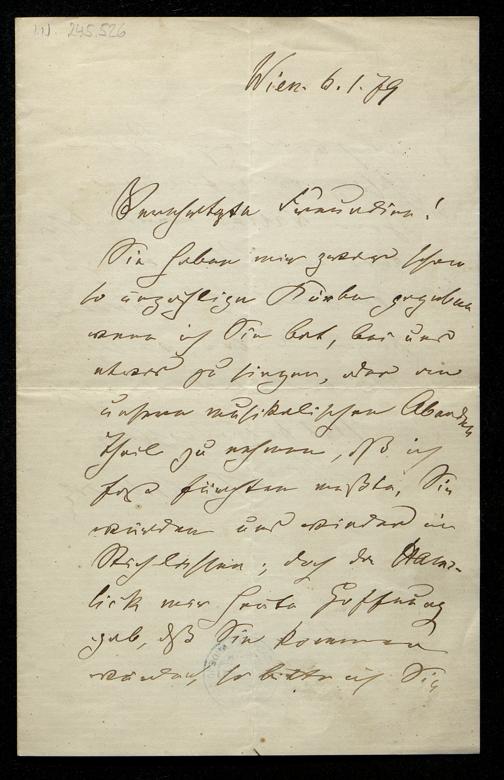 IN. 245.526
Wien. 6.1.79
Verehrteste Freundin!
Sie haben mir zwar schon
so unzählige Körbe gegeben
wenn ich Sie bat, bei uns
etwas zu singen, oder an
unsern musikalischen Abenden
Theil zu nehmen, daß ich
fast fürchten mußte, Sie
würden uns wieder im
Stich lassen; doch da
lick mir heute Hoffnung
gab, daß Sie kommen
würden, so bitte ich Sie